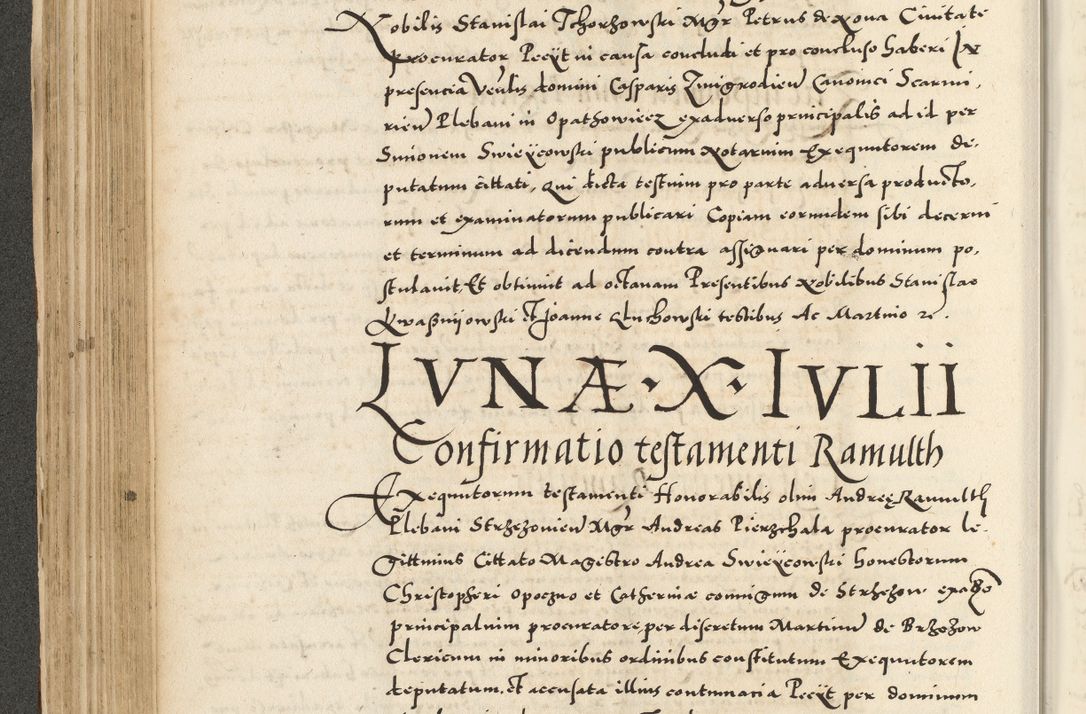 Nobilis Stanislai Tchorzowski Mgr Petrus de Nova Ciuitate
procurator Pecÿt in causa concludi et pro concluso haberi In
presencia Venlis domini Casparis Zmigrodien Canonici Scarmi.
rien Plebani in Opathowiecz exadverso principalis ad id per
Simonem Swieÿcowski publicum Notarium Exequutorem de.
putatum cittati, Qui dicta testium pro parte adversa producto.
rum et examinatorum publicari Copiam eorundem sibi decerni
et terminum ad dicendum contra assignari per dominum po.
stulauit, Et obtinuit ad octanam Presentibus Nobilibus Stanislao
Kwasznijowski Et Joanne Luchowski testibus Ac Martino
LVNÆ · X · IVLII
Confirmatio testamenti Ramulth
Exequutorum testamenti Honorabilis olim Andreę Ramulth
Plebani Strzezowien Mgr Andreas Pierzchala procurator le.
gittimus Cittato Magistro Andrea Swieÿcowski honestorum
Christopheri Opoczno et Catherinæ coniugum de Strzezow
principalium procuratore per discretum Martinum de Brzozow
Clericum in minoribus ordinibus constitutum Exequutorem
deputatum, Et accusata illius contumacia Pecÿt per dominum